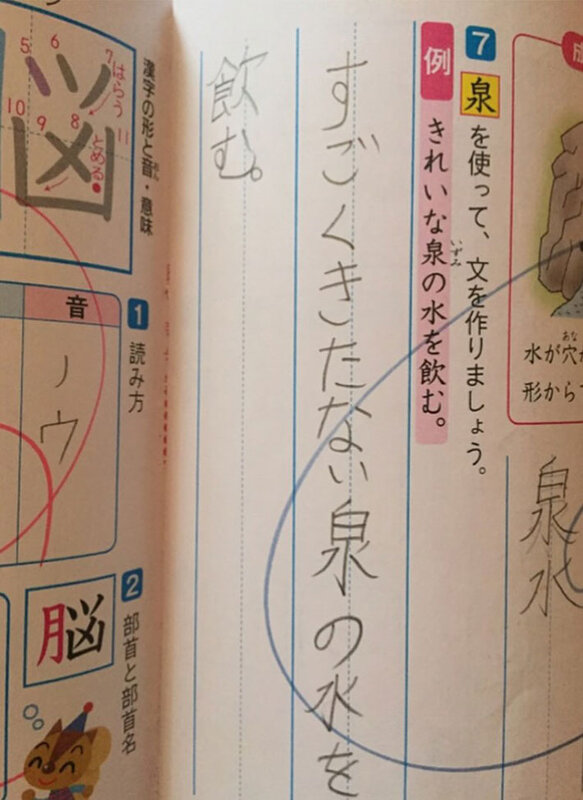 成
水が穴か
形から
泉水
7 泉を使って、文を作りましょう。
いずみ
例 きれいな泉の水を飲む。
すごくきたない泉の水を
飲む。
漢字の形と音・意味
5 6 7 はらう
10 9 8 とめる 11
1 読み方
音
ノウ
2 部首と部首名
脳